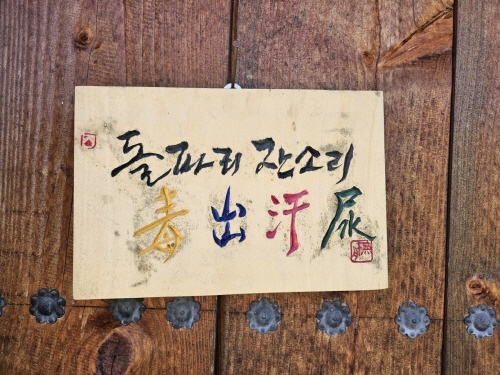 돌파리 잔소리
毒出汗尿